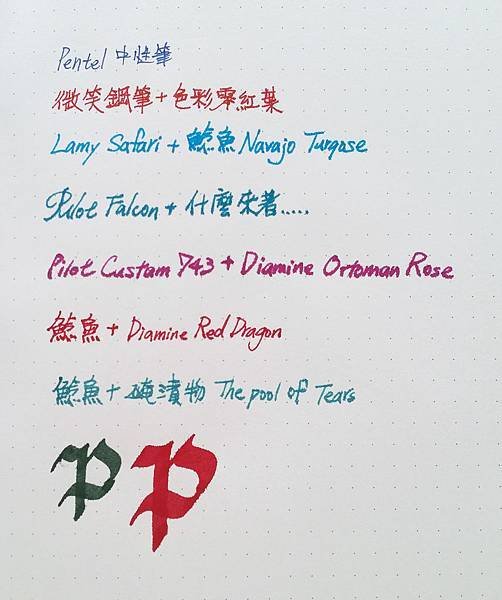 Pentel 中性筆
微笑鋼筆+色彩雫紅葉
Lamy Safari + 鯰魚 Navajo Turqose
Pilot Falcon + 什麼來著.....
Pilot Custam 743 + Diamine Ortoman Rose
鯰魚 + Diamine Red Dragon
鯰魚 + 醃漬物 The pool of Tears
P P